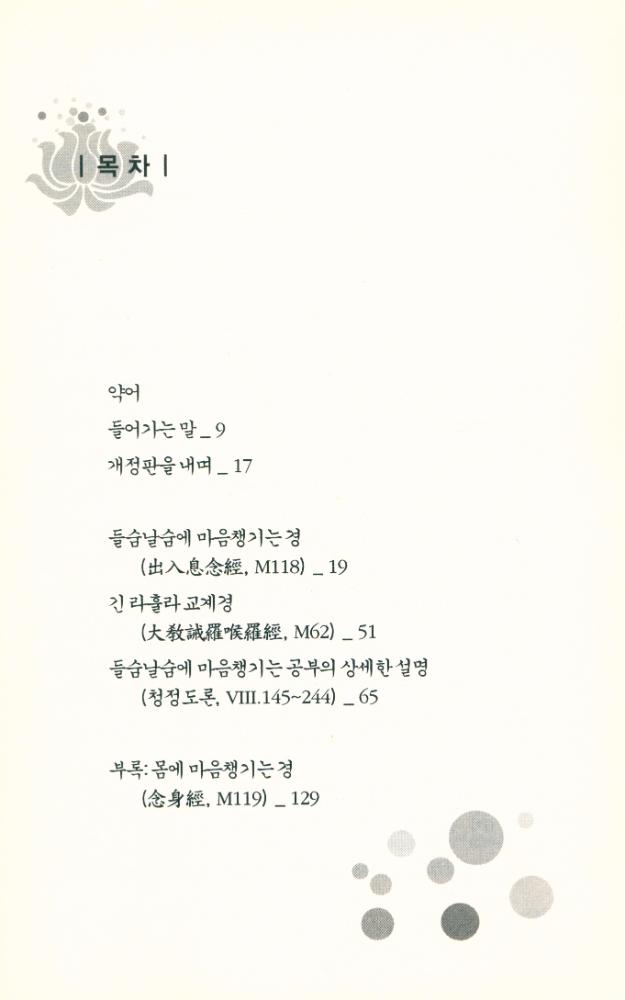 | 목 차 |
약어
들어가는 말 _ 9
개정판을 내며 _ 17
들숨날숨에 마음챙기는 경
(出入息念經, M118) _ 19
긴 라훌라 교계경
(大敎誡羅喉羅經, M62) _ 51
들숨날숨에 마음챙기는 공부의 상세한 설명
(청정도론, VIII.145~244) _ 65
부록: 몸에 마음챙기는 경
(念身經, M119) _ 129